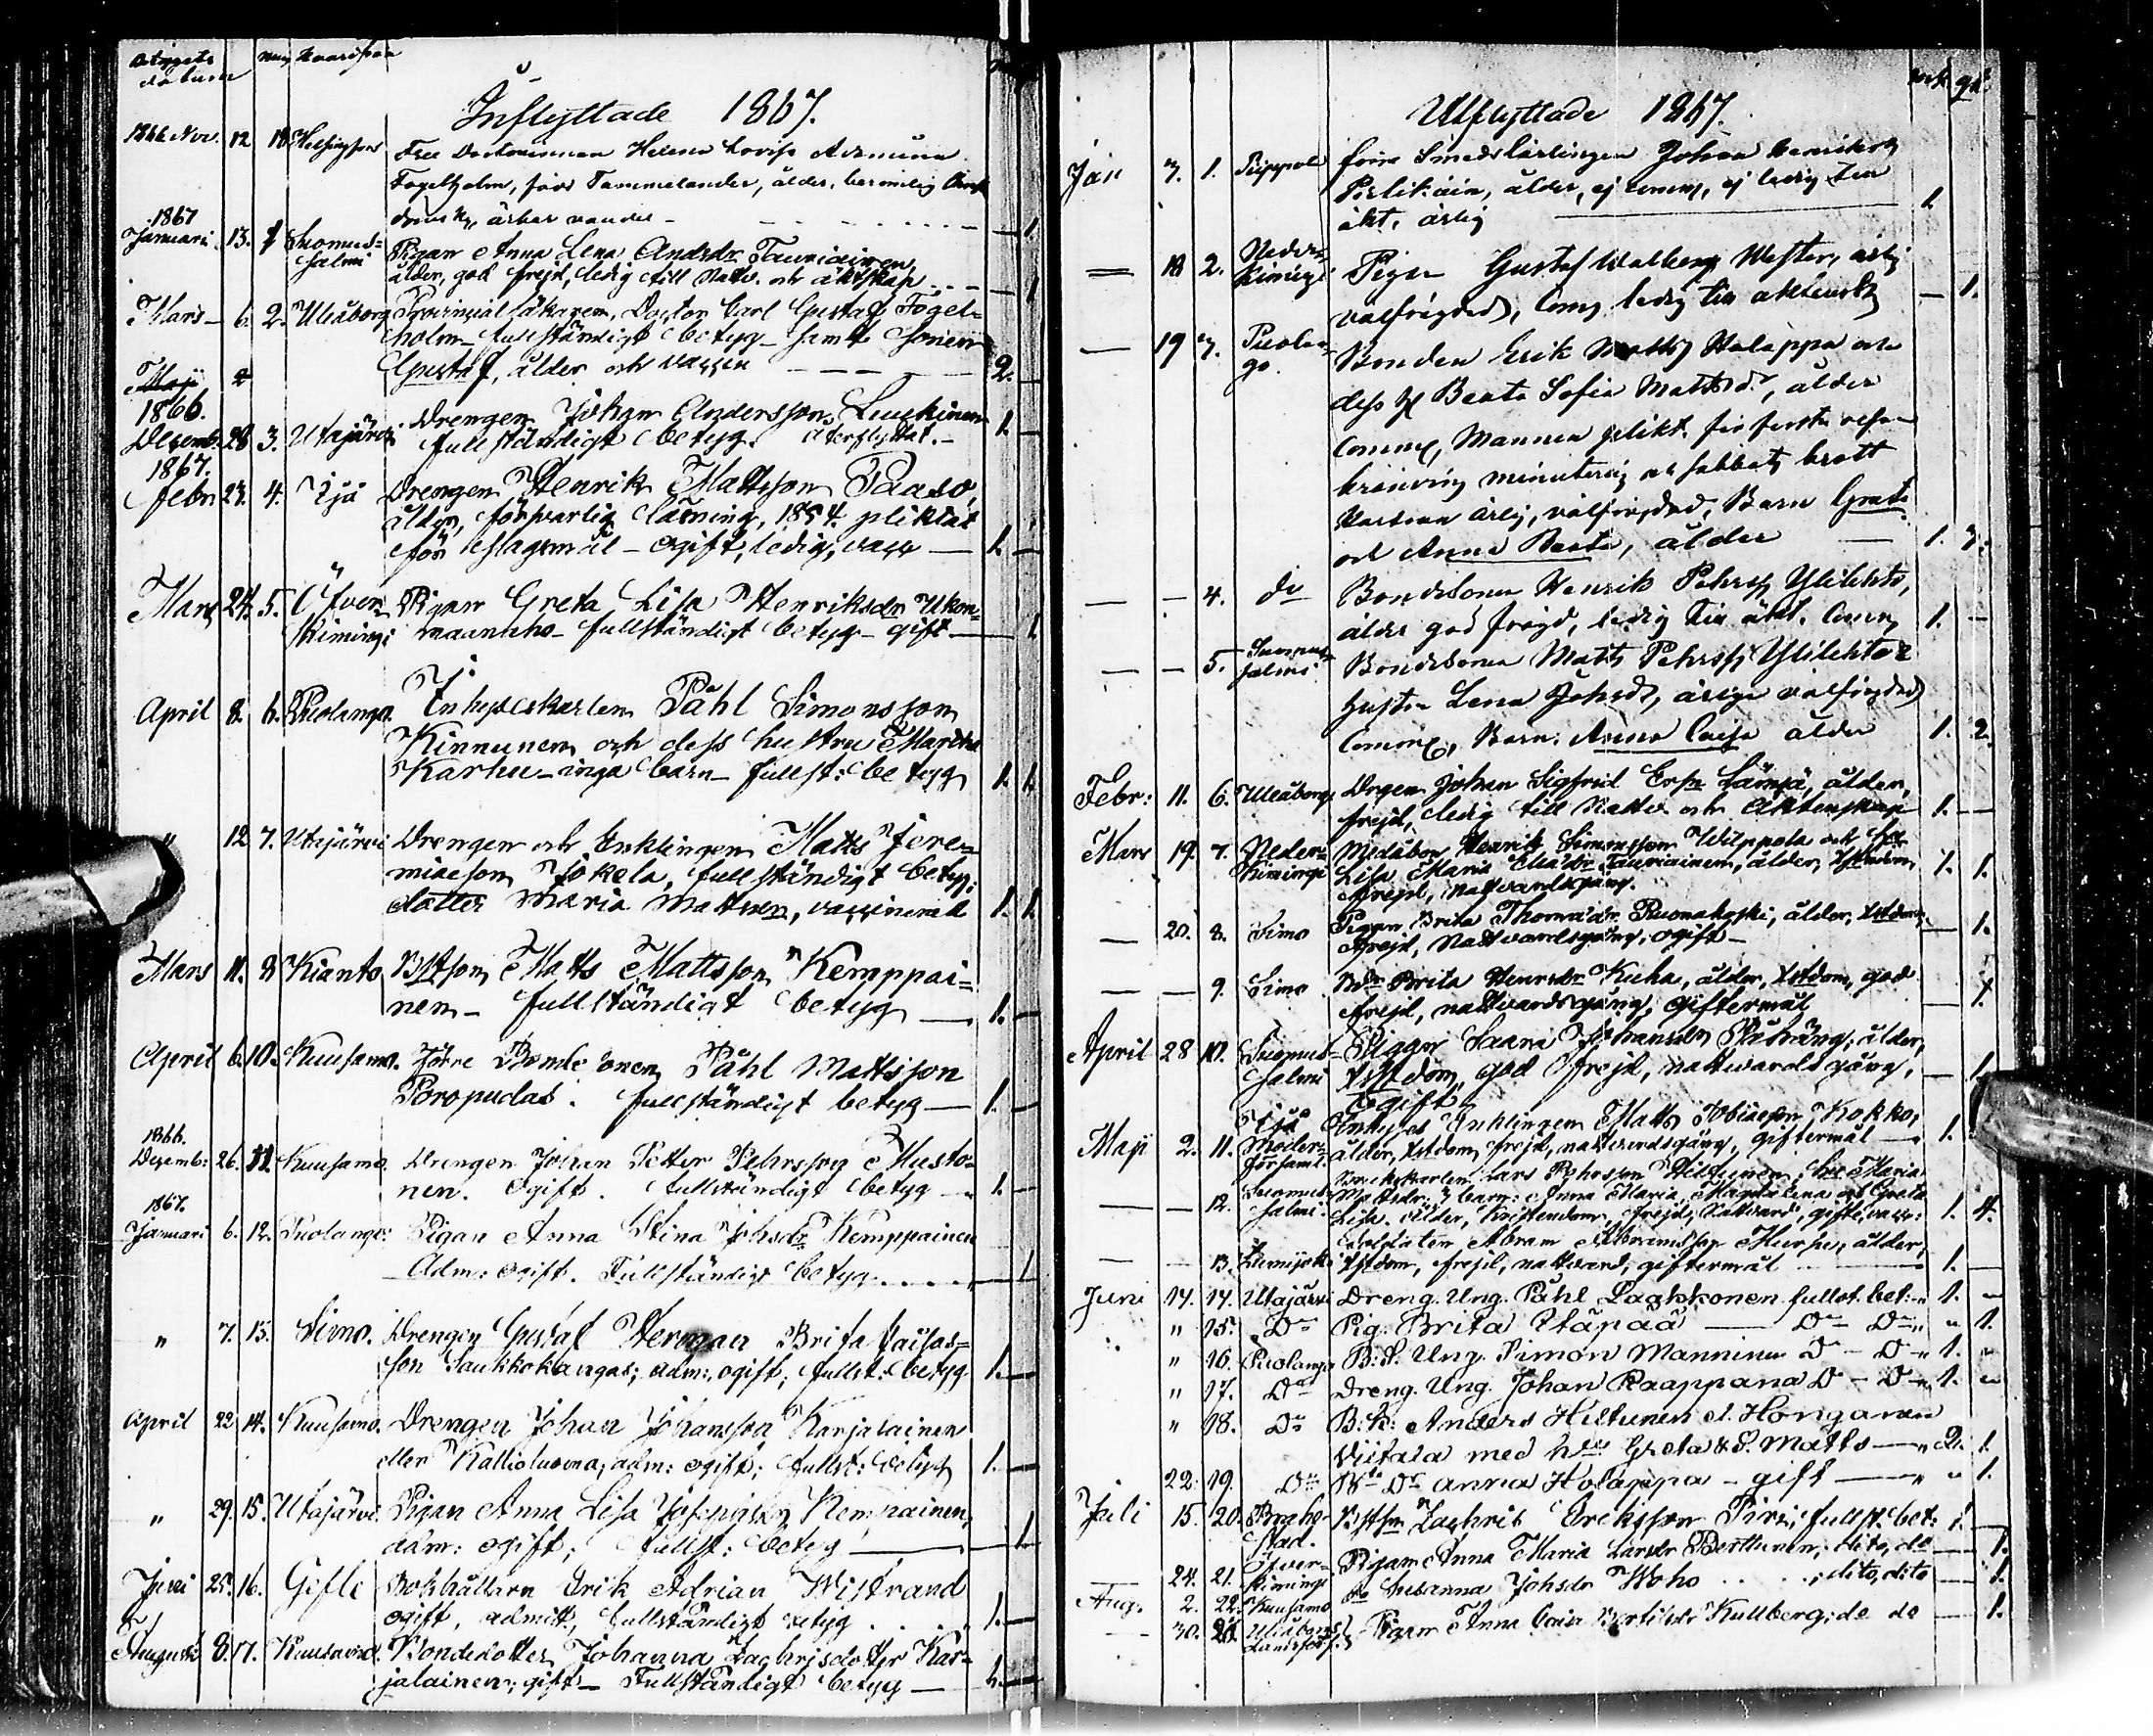 Betygets datum
Num Hvarifrån
Inflyttade 1867.
1866 Nov. 12 Helsingfors Helena Lovisa
Fogelholm, född Tammelander, ålder,
1867
Januari 13. 1 Suomus= Pigan Anna Lena Andrsdr Tauriainen
salmi ålder, god frejd, ledig till Nattv. och äktskap 1
Mars 6. 2. Uleåborg Provinsialläkaren, Doctor Carl Gustaf Fogel=
holm fullständigt betyg samt sonen
Gustaf, ålder och vaccin 2.
Maji
1866.
Decemb: 28 3. Utajärvi Drengen Johan Andersson Leuskinen 1
fullständigt betyg. återflyttat.
1867.
Febr. 27. 4. Ijå Drengen Henrik Mattsson Paaso,
ålder, försvarlig läsning, 1854 pliktat
för slagsmål - ogift, ledig, vacc 1.
Mars 24. 5. Öfver Pigan Greta Lisa Henriksdr Ukon=
Kimingi maanaho fullständigt betyg - gift 1
April 8. 6. Puolango Inhyseskarlen Påhl Simonsson
Kinnunen och dess hustru Martha
Karhu - inga barn - fullst: betyg 1. 1.
" 12 7. Utajärvi Drengen och Enklingen Matts Jere=
miaeson Jokela, fullständigt betyg;
dotter Maria vaccinerad 1. 1.
Mars 11. 8 Kianto Bdson Matts Mattsson Kemppai=
nen - fullständigt betyg 1.
April 6. 10. Kuusamo. Förre Bonde sonen Påhl Mattsson
Poropudas. fullständigt betyg 1.
1866.
Decemb: 26. 11. Kuusamo. Drengen Johan Petter Pehrsson Musto=
nen. Ogift. fullständigt betyg 1.
1867.
Januari 6. 12. Puolango: Pigan Anna Stina Johsdr Kemppainen
Adm: ogift. Fullständigt betyg 1
" 7. 13. Simo. Drengen Gustaf Herman Brita Caisas=
son Saukkokangas; adm:, ogift, fullst: betyg 1.
April 22 14. Kuusamo. Drengen Johan Johansson Karjalainen
eller Kallioluoma, adm: ogift; fullst: betyg 1.
" 29. 15. Utajärvi. Pigan Anna Lisa Josephsdr Kempainen,
adm: ogift; fullst: betyg 1
Juni 25. 16. Gefle Bokhållarn Erik Adrian Wistrand
ogift, admitt, fullständigt betyg 1.
Augusti 8. 17. Kuusamo. Bondedotter Johanna Zachrisdotter Kar=
jalainen; gift - Fullständigt betyg 1.
mk. qk.
Utflyttade 1867.
Jan 7. 1. Piippola förre Smedslärlingen Johan Henriksson
ålder,
äkt. ärlig 1.
18 2. Neder Pigan Gustaf Walberg Wester, ärlig
Kimingi välfrägdad, ledig till äktenskap 1.
19 3. Puolan= Bonden Erik Mattss Holappa och
go. dess h Beata Sofia Mattsdr, ålder
Mannen plikt. för första resan
bränvins minutering och sabbats brott
Hustrun ärlig, välfrägdad, Barn Greta
och Anna Beata, ålder 1. 3.
4. do Bondsonen Henrik Pehrss Ylilehto,
ålder god frägd, ledig till äkt. 1.
5. Suomus= Bondsonen Matts Pehrss Ylilehto
salmi hustru Lena Johsdr, ärliga välfrägdad
Barn: Anna Caisa ålder 1. 2.
Febr: 11. 6. Uleåborgs Drgen Johan Sigfrid Ersn Lämsä, ålder,
frejd, ledig till Nattv. och Äktenskap 1.
Mars 19. 7. Neder= Henrik Simonsson Wilppola och
Kimingi Lisa Maria Eliasdr Tauriainen, ålder, Xstendom,
frejd, nattvardsgång. 1. 1.
20. 8. Simo Pigan Brita Thomasdr Ruonakoski, ålder, Xstdom,
frejd, Nattvardsgång, ogift 1.
9. Simo Bdr Brita Henrsdr Kuha, ålder, Xstdom, god
frejd, nattvardsgång, giftermål 1.
April 28 10. Suomus= Pigan Saara Johansdr ålder,
salmi Xstdom, god frejd, nattvardsgång,
Ogift 1.
Maji 2. 11. Ijå Enklingen Matts Tobiasson Kokko,
Moder= ålder, Xstdom, frejd, nattvardsgång, giftermål 1.
församl.
12. Suomus= Lars Pehrsson Hiltunen, Maria
salmi. Mattsdr, 3 barn: Anna Maria, Magdalena och Greta
Lisa. Ålder, Kristendom, frejd, Nattvard, gifte, vacc: 1. 4.
13. Lumijoki Soldaten Abram Abramsson ålder,
Xstdom, frejd, nattvard, giftermål 1.
Juni 14. 14. Utajärvi Dreng. Ung. Påhl Laakkonen fullst. bet: 1. "
" 15. Do Pig. Brita Itäpää Do Do " 1.
" 16. Puolango B.S. Ung. Simon Manninen Do - Do 1. "
" 17. Do Dreng. Ung. Johan Raappana Do - Do 1. "
" 18. Do B: k: Anders Hiltunen el. Hongavaara
Viitala med hu Greta & S. Matts 2. 1.
22. 19. Do Bdr Do Anna Holappa - gift " 1.
Juli 15. 20. Brahe= Bdson Zachris Eriksson Piri; fullst. bet: 1.
stad.
24. 21. Öfver= Pigan Anna Maria Larsdr Perttunen, dito, do 1.
Kimingi
Aug. 2. 22. Kuusamo do Susanna Johsdr Woho dito, dito 1.
30. 23. Uleåborgs Pigan Anna Caisa Bertilsdr Kullberg; do do 1.
Landsförs: